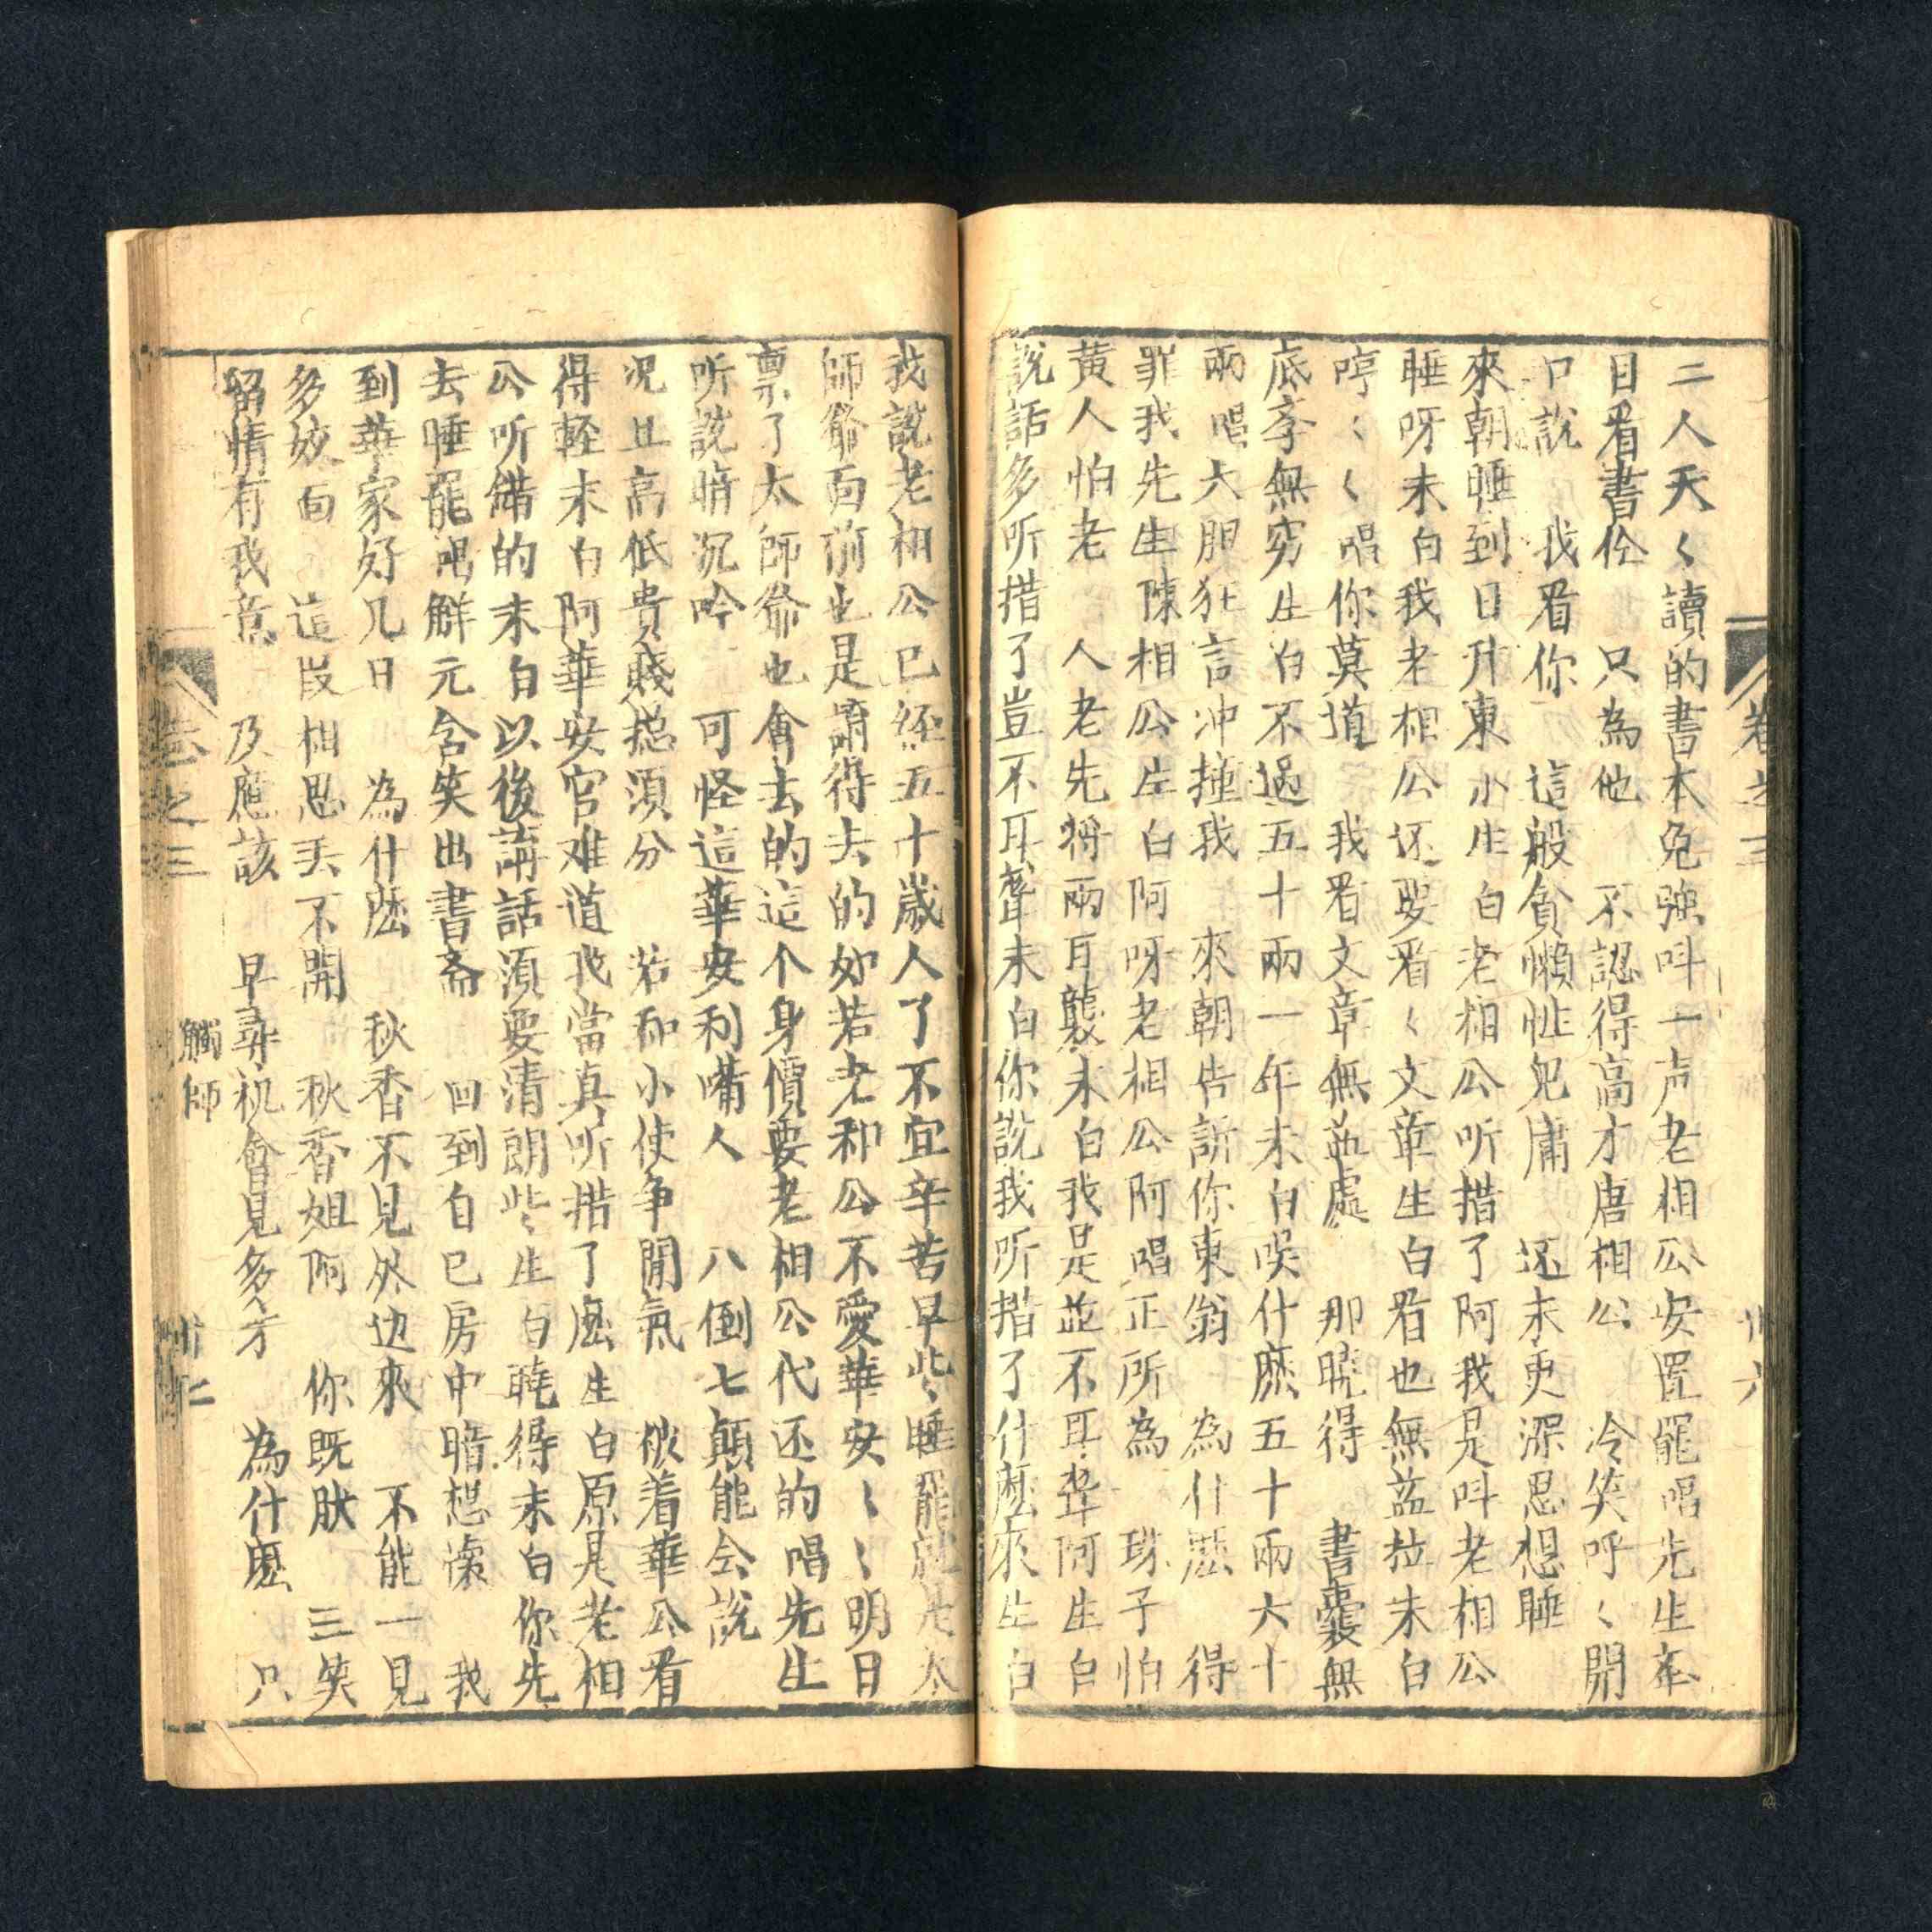 二人天〻讀的書本免強叫一声老相公安置罷唱先生在
目看書伀　只為他　不認得高才唐相公　冷笑呼〻開
口說　我看你　這般貪懶性児庸　还未更深思想睡
來朝睡到日升東　小生白老相公听措了阿我是叫老相公
睡呀末白我老相公还要看〻文章生白看也無益拉末白
哼〻〻唱你莫道　我看文章無益處　那曉得　書囊無
底李無穷生白不過五十兩一年末白唉什麽五十兩六十
兩唱大胆狂言冲撞我　來朝告訴你東翁　為什麽　得
罪我先生陳相公生白阿呀老相公阿唱正所為　珠子怕
黃人怕老　人老先將兩耳襲末白我是並不耳聾阿生白
說話多听措了豈不耳聾末白你說我听措了什麽來生白
我說老相公已經五十歲人了不宜辛苦早些〻睡罷就是太
師爺面前也是講得去的如若老和公不愛華安〻〻明日
禀了太師爺也會去的這个身價要老相公代还的唱先生
听說暗沉吟　可怪這華安利嘴人　八倒七顛能会說
况且高低貴賤揔須分　若和小使争閒氣　伋着華公看
得輕末白阿華安官难道我當真听措了麽生白原是老相
公听錯的末白以後講話須要清朗些〻生白曉得末白你先
去睡罷唱解元含笑出書斋　回到自已房中暗想懷　我
到華家好几日　為什麽　秋香不見外边來　不能一見
多姣面　這段相思丢不開　秋香姐阿　你既肰　三笑
留情有我意　及應該　早尋机會見多才　為什麽　只
觸師
卷之三